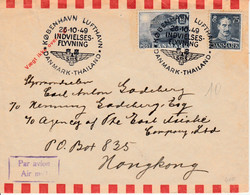 KØBENHAVN LUFTHAVN
26-10-49
INDVIELSES-
FLYVNING
DANMARK-THAILAND
KØBENHAVN LUFTHAVN
26-10-49
INDVIELSES-
FLYVNING
DANMARK-THAILAND
DANMARK
Earl Anton Gadsberg
To Henning Gadsberg Esq
To Agency of The East Asiatic
Company Ltd
P.O. Box 835
Hongkong
Par avion
Air mail
10